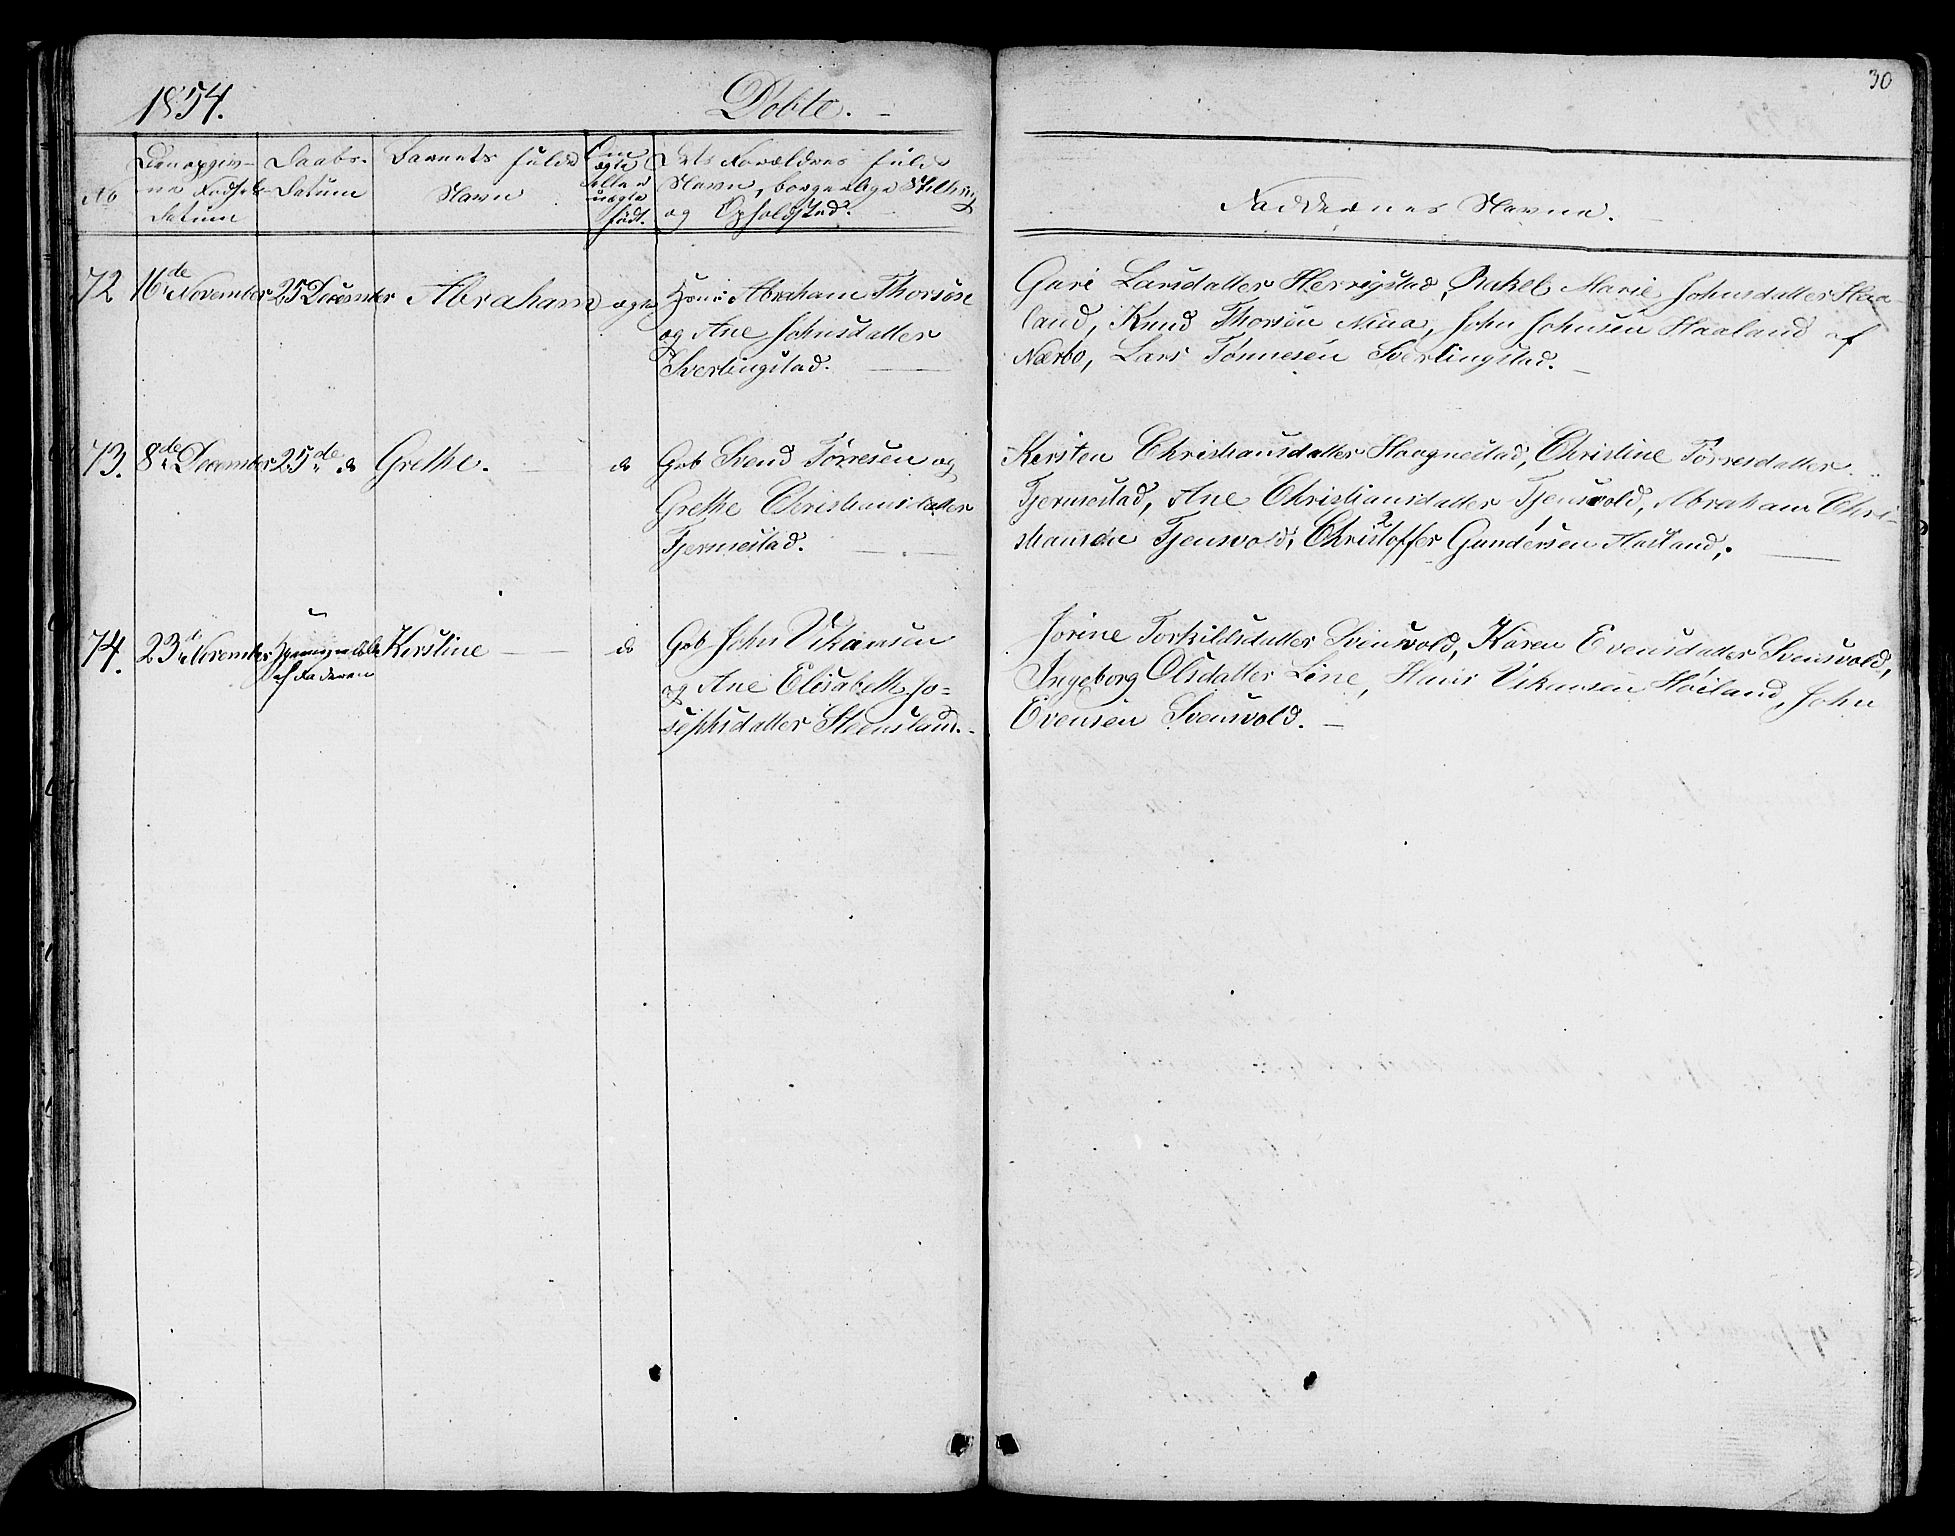 1854.
Døbte. -
30
No
Den opgiv-
ne Fødsels
Datum
Daabs-
Datum
Barnets fulde
Navn
Om
ægte
eller
uægte
født.
Dets Forældres fulde
Navn, borgerlige Stilling
og Opholdsted.
Faddernes Navne.
72 16de November 25 December Abraham ægte Abraham Thorsøn
og Ane Johnsdatter
Sverlingstad.
Guri Larsdatter Herrigstad, Rakel Marie Johnsdatter Haa-
land, Knud Thorsøn Niaa, John Johnsen Haaland af
Nærbo, Lars Tønnesen Sverlingstad.
73. 8de December 25de do Grethe. do Gbr Svend Tørresen og
Grethe Christiansdatter
Tjermestad.
Kirsten Christiansdatter Haagnestad, Christine Tørresdatter
Tjermestad, Ane Christiansdatter Tjensvold, Abraham Chri-
stiansen Tjensvold, Christoffer Gundersen Hasland.
74. 23de November Hjemmedøbt
af Faderen Kirstine do Gbr John Vikansen
og Ane Elisabeth Jo-
sephsdatter Steensland.
Jorine Torkildsdatter Svensvold, Karen Evensdatter Svensvold,
Ingeborg Olsdatter Line, Hans Vikansen Høiland, John
Evensen Svensvold.